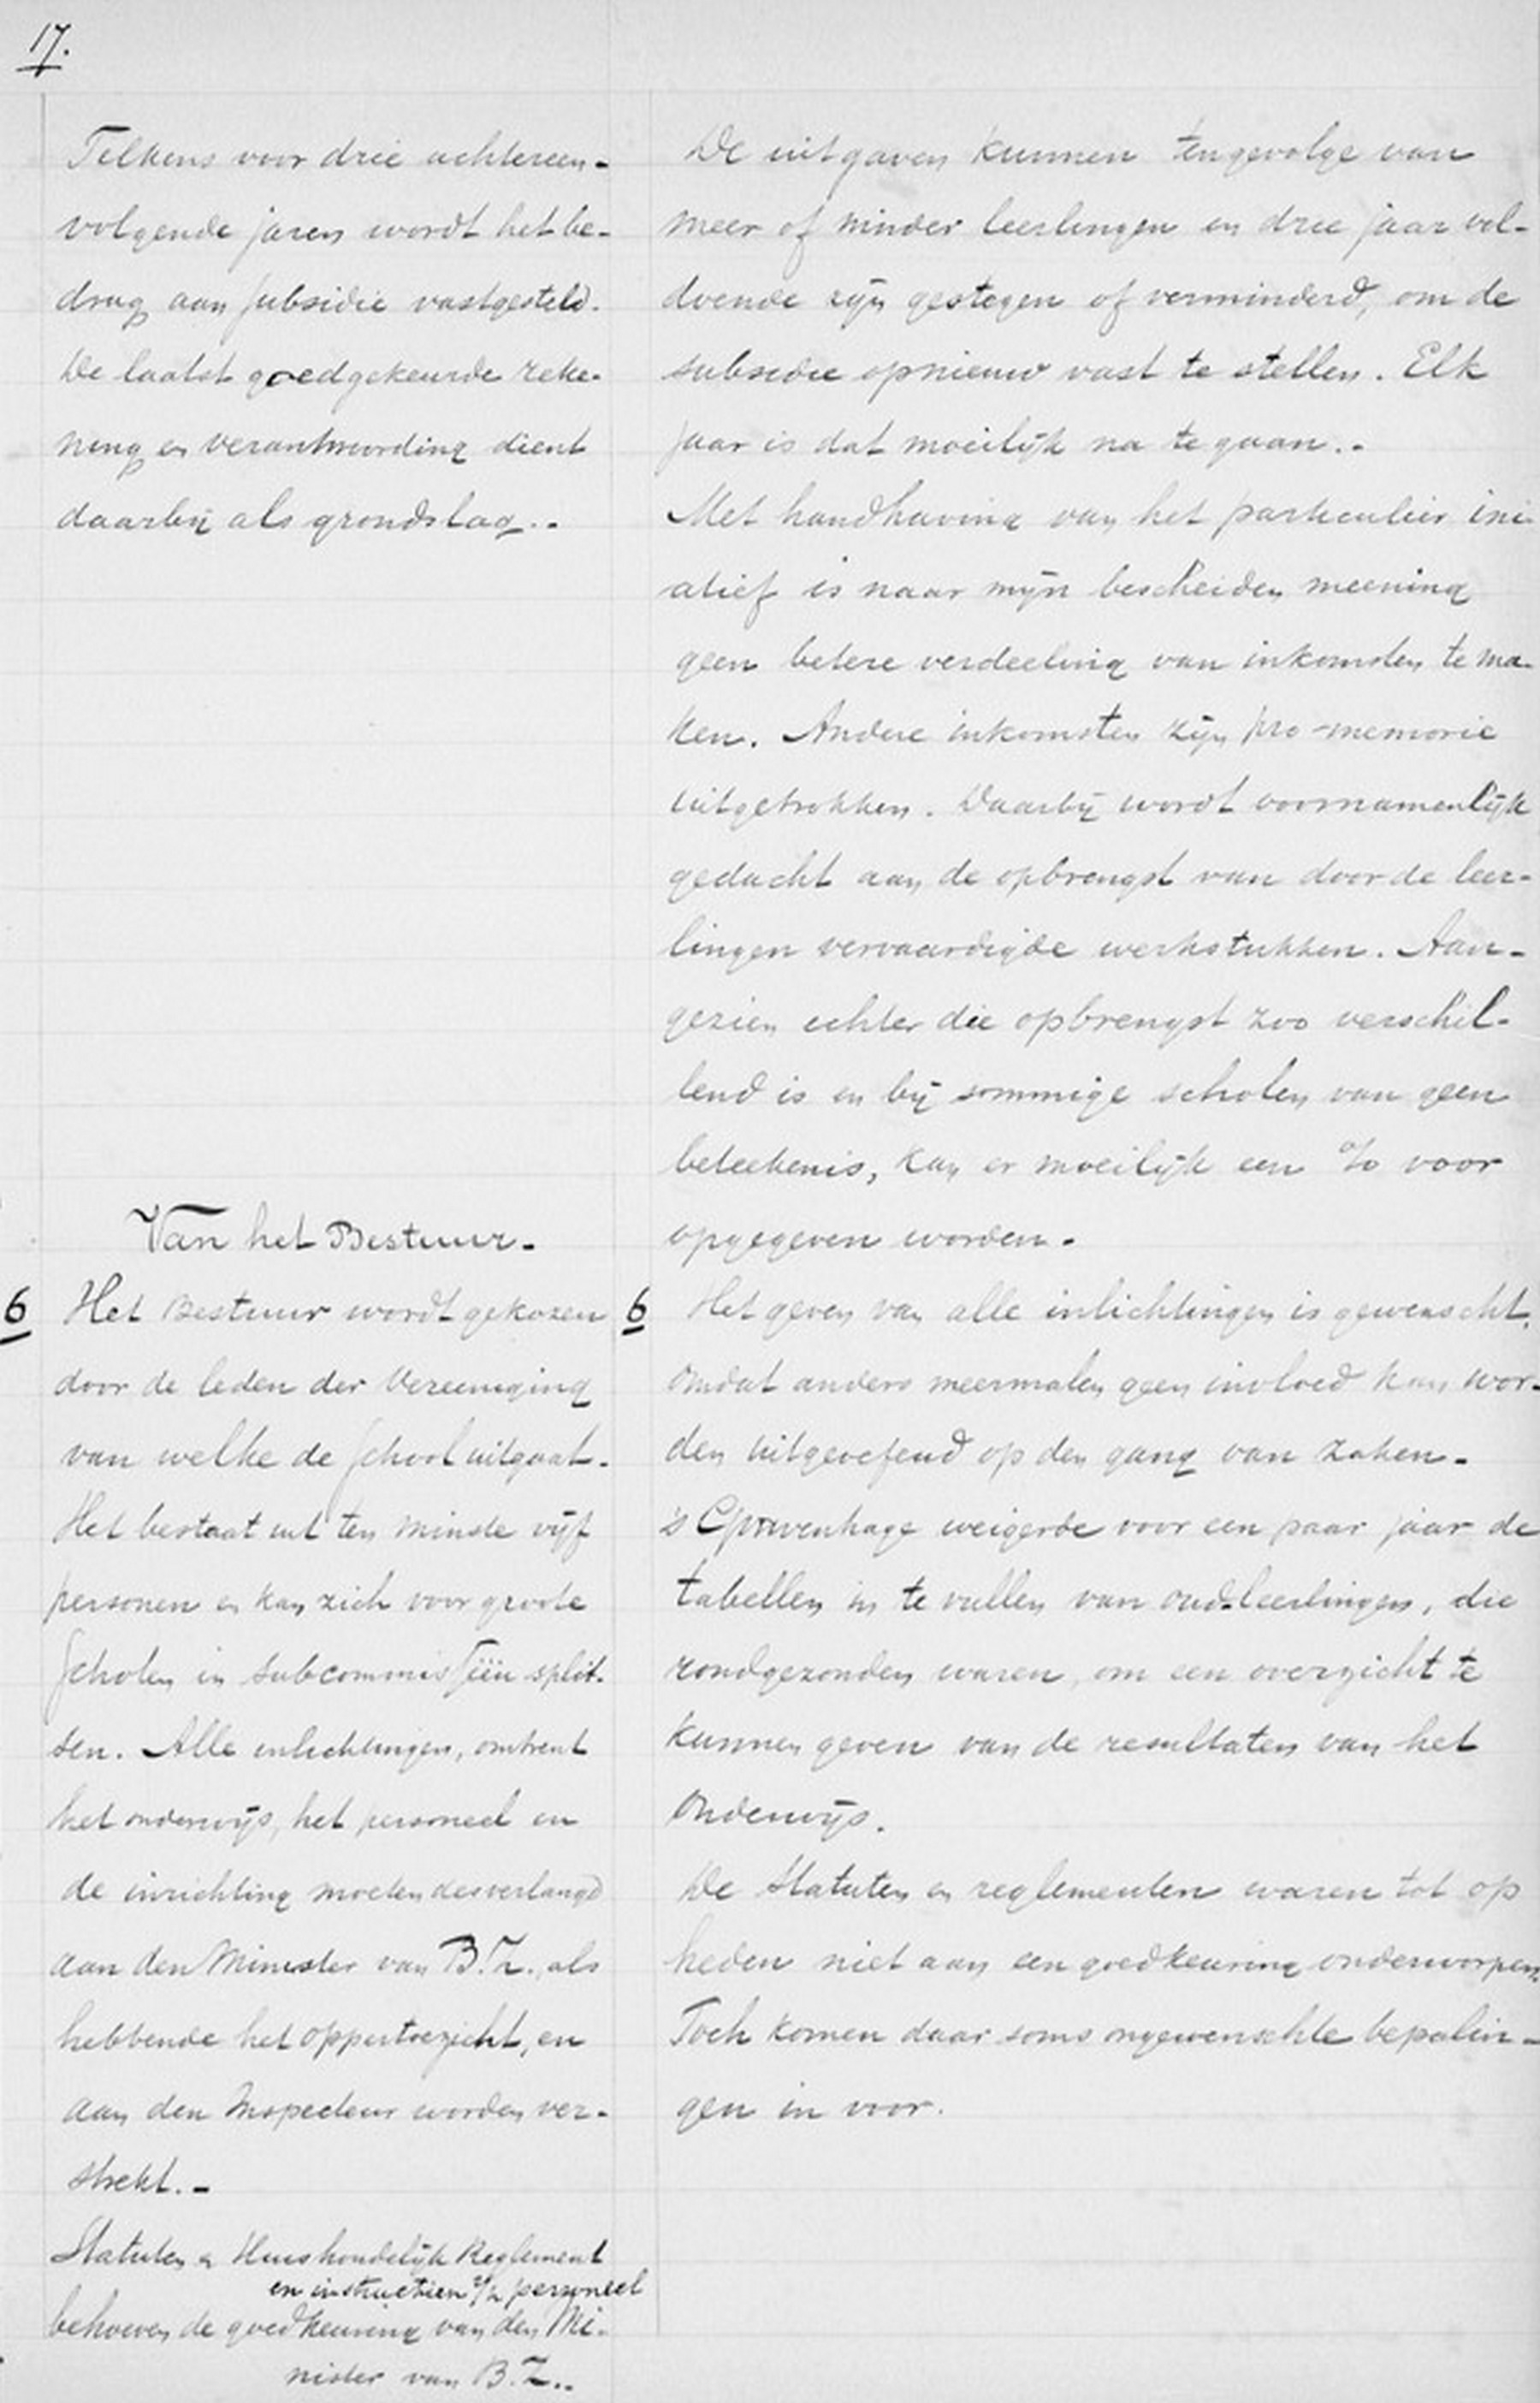 17.
Telkens voor drie achtereen-
volgende jaren wordt het be-
drag aan subsidie vastgesteld.
De laatst goedgekeurde reke-
ning en verantwoording dient
daarbij als grondslag.-
Van het Bestuur.-
6 Het Bestuur wordt gekozen
door de leden der Vereeniging
van welke de School uitgaat.
Het bestaat uit ten minste vijf
personen en kan zich voor groote
Scholen in subcommissiën split-
sen. Alle inlichtingen, omtrent
het onderwijs, het personeel en
de inrichting moeten desverlangd
aan den Minister van B.Z., als
hebbende het oppertoezicht, en
aan den Inspecteur worden ver-
strekt.-
Statuten en Huishoudelijk Reglement
en instructien v/h personeel
behoeven de goedkeuring van den Mi-
nister van B.Z..
De uitgaven kunnen tengevolge van
meer of minder leerlingen in drie jaar vol-
doende zijn gestegen of verminderd, om de
subsidie opnieuw vast te stellen. Elk
jaar is dat moeilijk na te gaan.-
Met handhaving van het particulier ini-
atief is naar mijn bescheiden meening
geen betere verdeeling van inkomsten te ma-
ken. Andere inkomsten zijn pro-memorie
uitgetrokken. Daarbij wordt voornamenlijk
gedacht aan de opbrengst van door de leer-
lingen vervaardigde werkstukken. Aan-
gezien echter die opbrengst zoo verschil-
lend is en bij sommige scholen van geen
beteekenis, kan er moeilijk een % voor
opgegeven worden.
6 Het geven van alle inlichtingen is gewenscht,
omdat anders meermalen geen invloed kan wor-
den uitgeoefend op den gang van zaken.-
's Gravenhage weigerde voor een paar jaar de
tabellen in te vullen van oud-leerlingen, die
rondgezonden waren, om een overzicht te
kunnen geven van de resultaten van het
onderwijs.
De Statuten en reglementen waren tot op
heden niet aan een goedkeuring onderworpen.
Toch komen daar soms ongewenschte bepalin-
gen in voor.